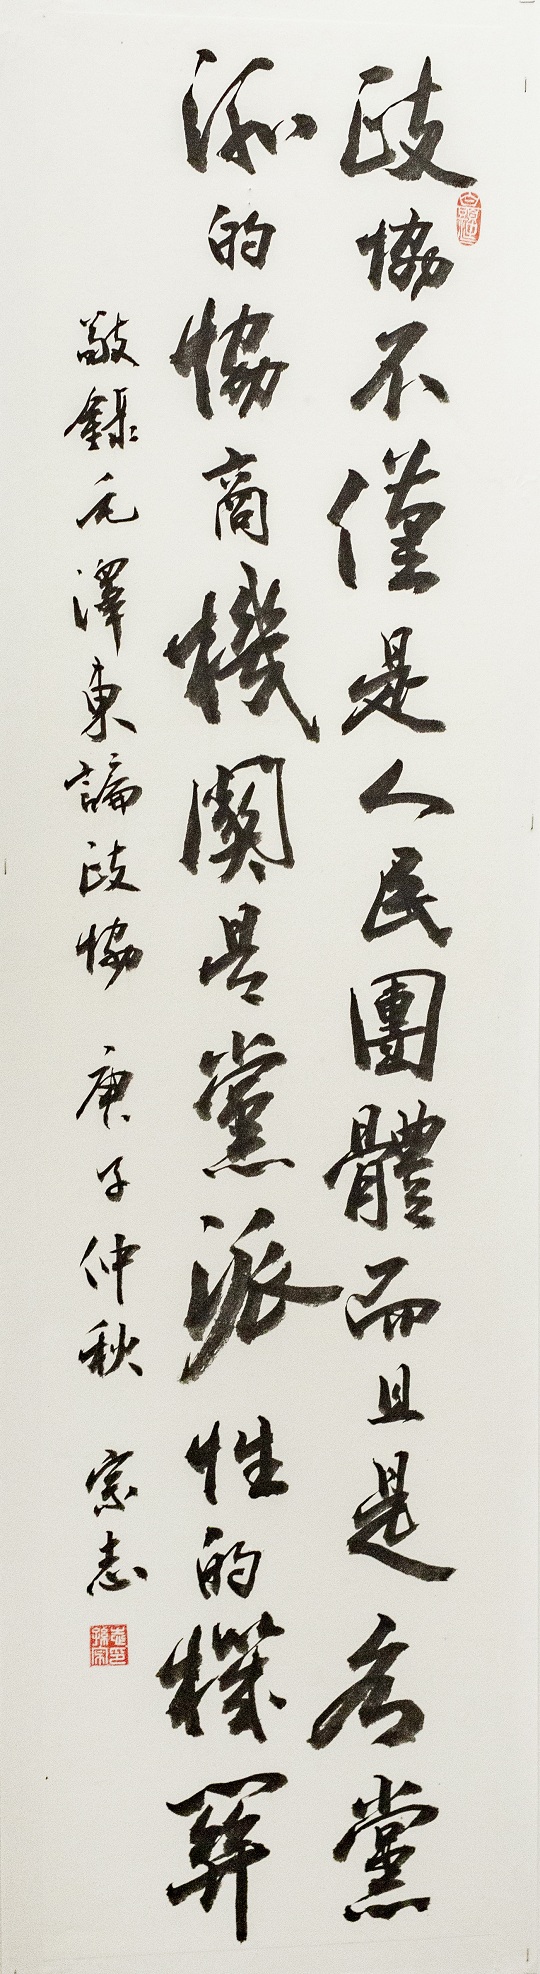 政協不僅是人民團體而且是各黨
派的協商機關是黨派性的機關
敬錄毛澤東論政協 庚子仲秋 宗志